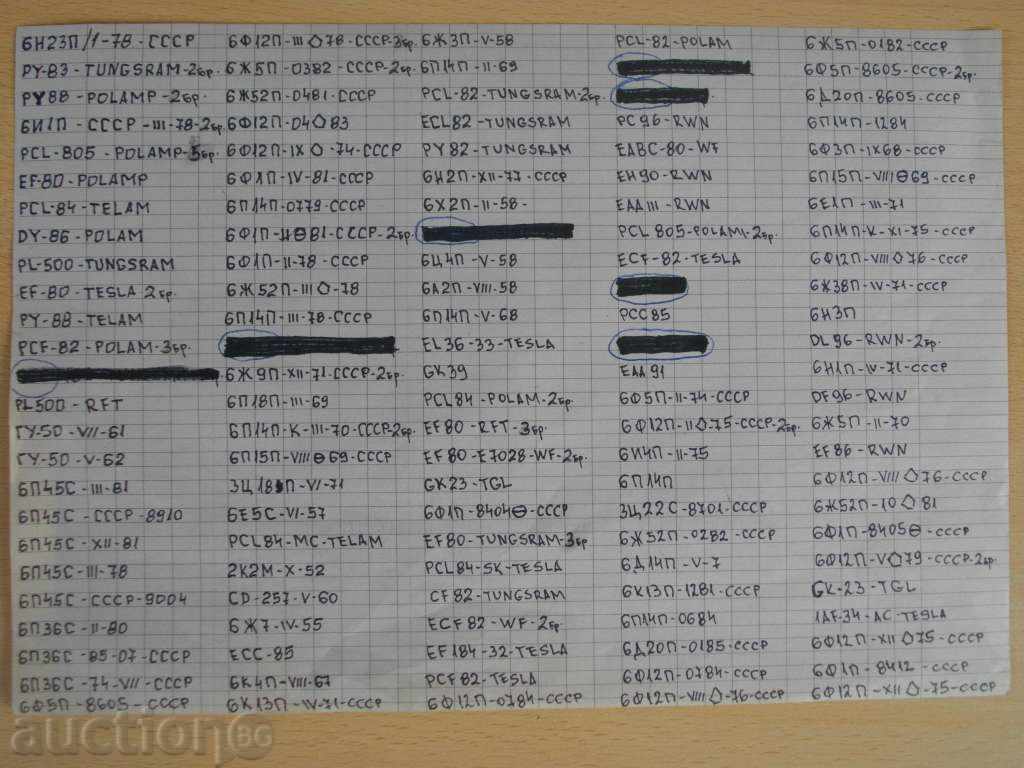 6Н23П/1-78-СССР
PY-83-TUNGSRAM-2бр.
PY88-POLAMP-2бр.
6И1П-СССР-III-78-2бр.
PCL-805-POLAMP-3бр.
EF-80-POLAMP
PCL-84-TELAM
DY-86-POLAM
PL-500-TUNGSRAM
EF-80-TESLA 2бр.
PY-88-TELAM
PCF-82-POLAM-3бр.
PL500-RFT
ГУ-50-VII-61
ГУ-50-V-62
6П45С-III-81
6П45С-СССР-8910
6П45С-XII-81
6П45С-III-78
6П45С-СССР-9004
6П36С-II-80
6П36С-85-07-СССР
6П36С-74-VII-СССР
6Ф5П-8605-СССР
6Ф12П-III◇78-СССР-3бр.
6Ж5П-0382-СССР-2бр.
6Ж52П-0481-СССР
6Ф12П-04◇83
6Ф12П-IX◇-74-СССР
6Ф1П-IV-81-СССР
6П14П-0779-СССР
6Ф1П-II⊖81-СССР-2бр.
6Ф1П-II-78-СССР
6Ж52П-III◇-78
6П14П-III-78-СССР
6Ж9П-XII-71-СССР-2бр.
6П18П-III-69
6П14П-К-III-70-СССР-2бр.
6П15П-VIII⊖69-СССР
3Ц18П-VI-71
6Е5С-VI-57
PCL84-MC-TELAM
2К2М-X-52
CD-257-V-60
6Ж7-IV-55
ECC-85
6К4П-VIII-67
6К13П-IV-71-СССР
6Ж3П-V-58
6П14П-II-69
PCL-82-TUNGSRAM-2бр.
ECL82-TUNGSRAM
PY82-TUNGSRAM
6Н2П-XII-77-СССР
6Х2П-II-58-
6Ц4П-V-58
6А2П-VIII-58
6П14П-V-68
EL36-33-TESLA
GK39
PCL84-POLAM-2бр.
EF80-RFT-3бр.
EF80-E7028-WF-2бр.
GK23-TGL
6Ф1П-8404⊖-СССР
EF80-TUNGSRAM-3бр
PCL84-5K-TESLA
CF82-TUNGSRAM
ECF82-WF-2бр.
EF184-32-TESLA
PCF82-TESLA
6Ф12П-0784-СССР
PCL-82-POLAM
PC96-RWN
EABC-80-WF
EH90-RWN
EAA111-RWN
PCL805-POLAM-2бр.
ECF-82-TESLA
PCC85
EAA91
6Ф5П-II-74-СССР
6Ф12П-II◇75-СССР-2бр.
6И4П-II-75
6П14П
3Ц22С-8701-СССР
6Ж52П-0282-СССР
6Д14П-V-7
6К13П-1281-СССР
6П14П-0684
6Д20П-0185-СССР
6Ф12П-0784-СССР
6Ф12П-VIII◇-76-СССР
6Ж5П-0182-СССР
6Ф5П-8605-СССР-2бр.
6Д20П-8605-СССР
6П14П-1284
6Ф3П-IX68-СССР
6П15П-VIII⊖69-СССР
6Е1П-III-71
6П14П-К-XI-75-СССР
6Ф12П-VIII◇76-СССР
6Ж38П-IV-71-СССР
6Н3П
DL96-RWN-2бр.
6Н1П-IV-71-СССР
DF96-RWN
6Ж5П-II-70
EF86-RWN
6Ф12П-VIII◇76-СССР
6Ж52П-10◇81
6Ф1П-8405⊖-СССР
6Ф12П-V◇79-СССР-2бр.
GK-23-TGL
1AF34-AC-TESLA
6Ф12П-XII◇75-СССР
6Ф1П-8412-СССР
6Ф12П-XII◇-75-СССР
auction BG